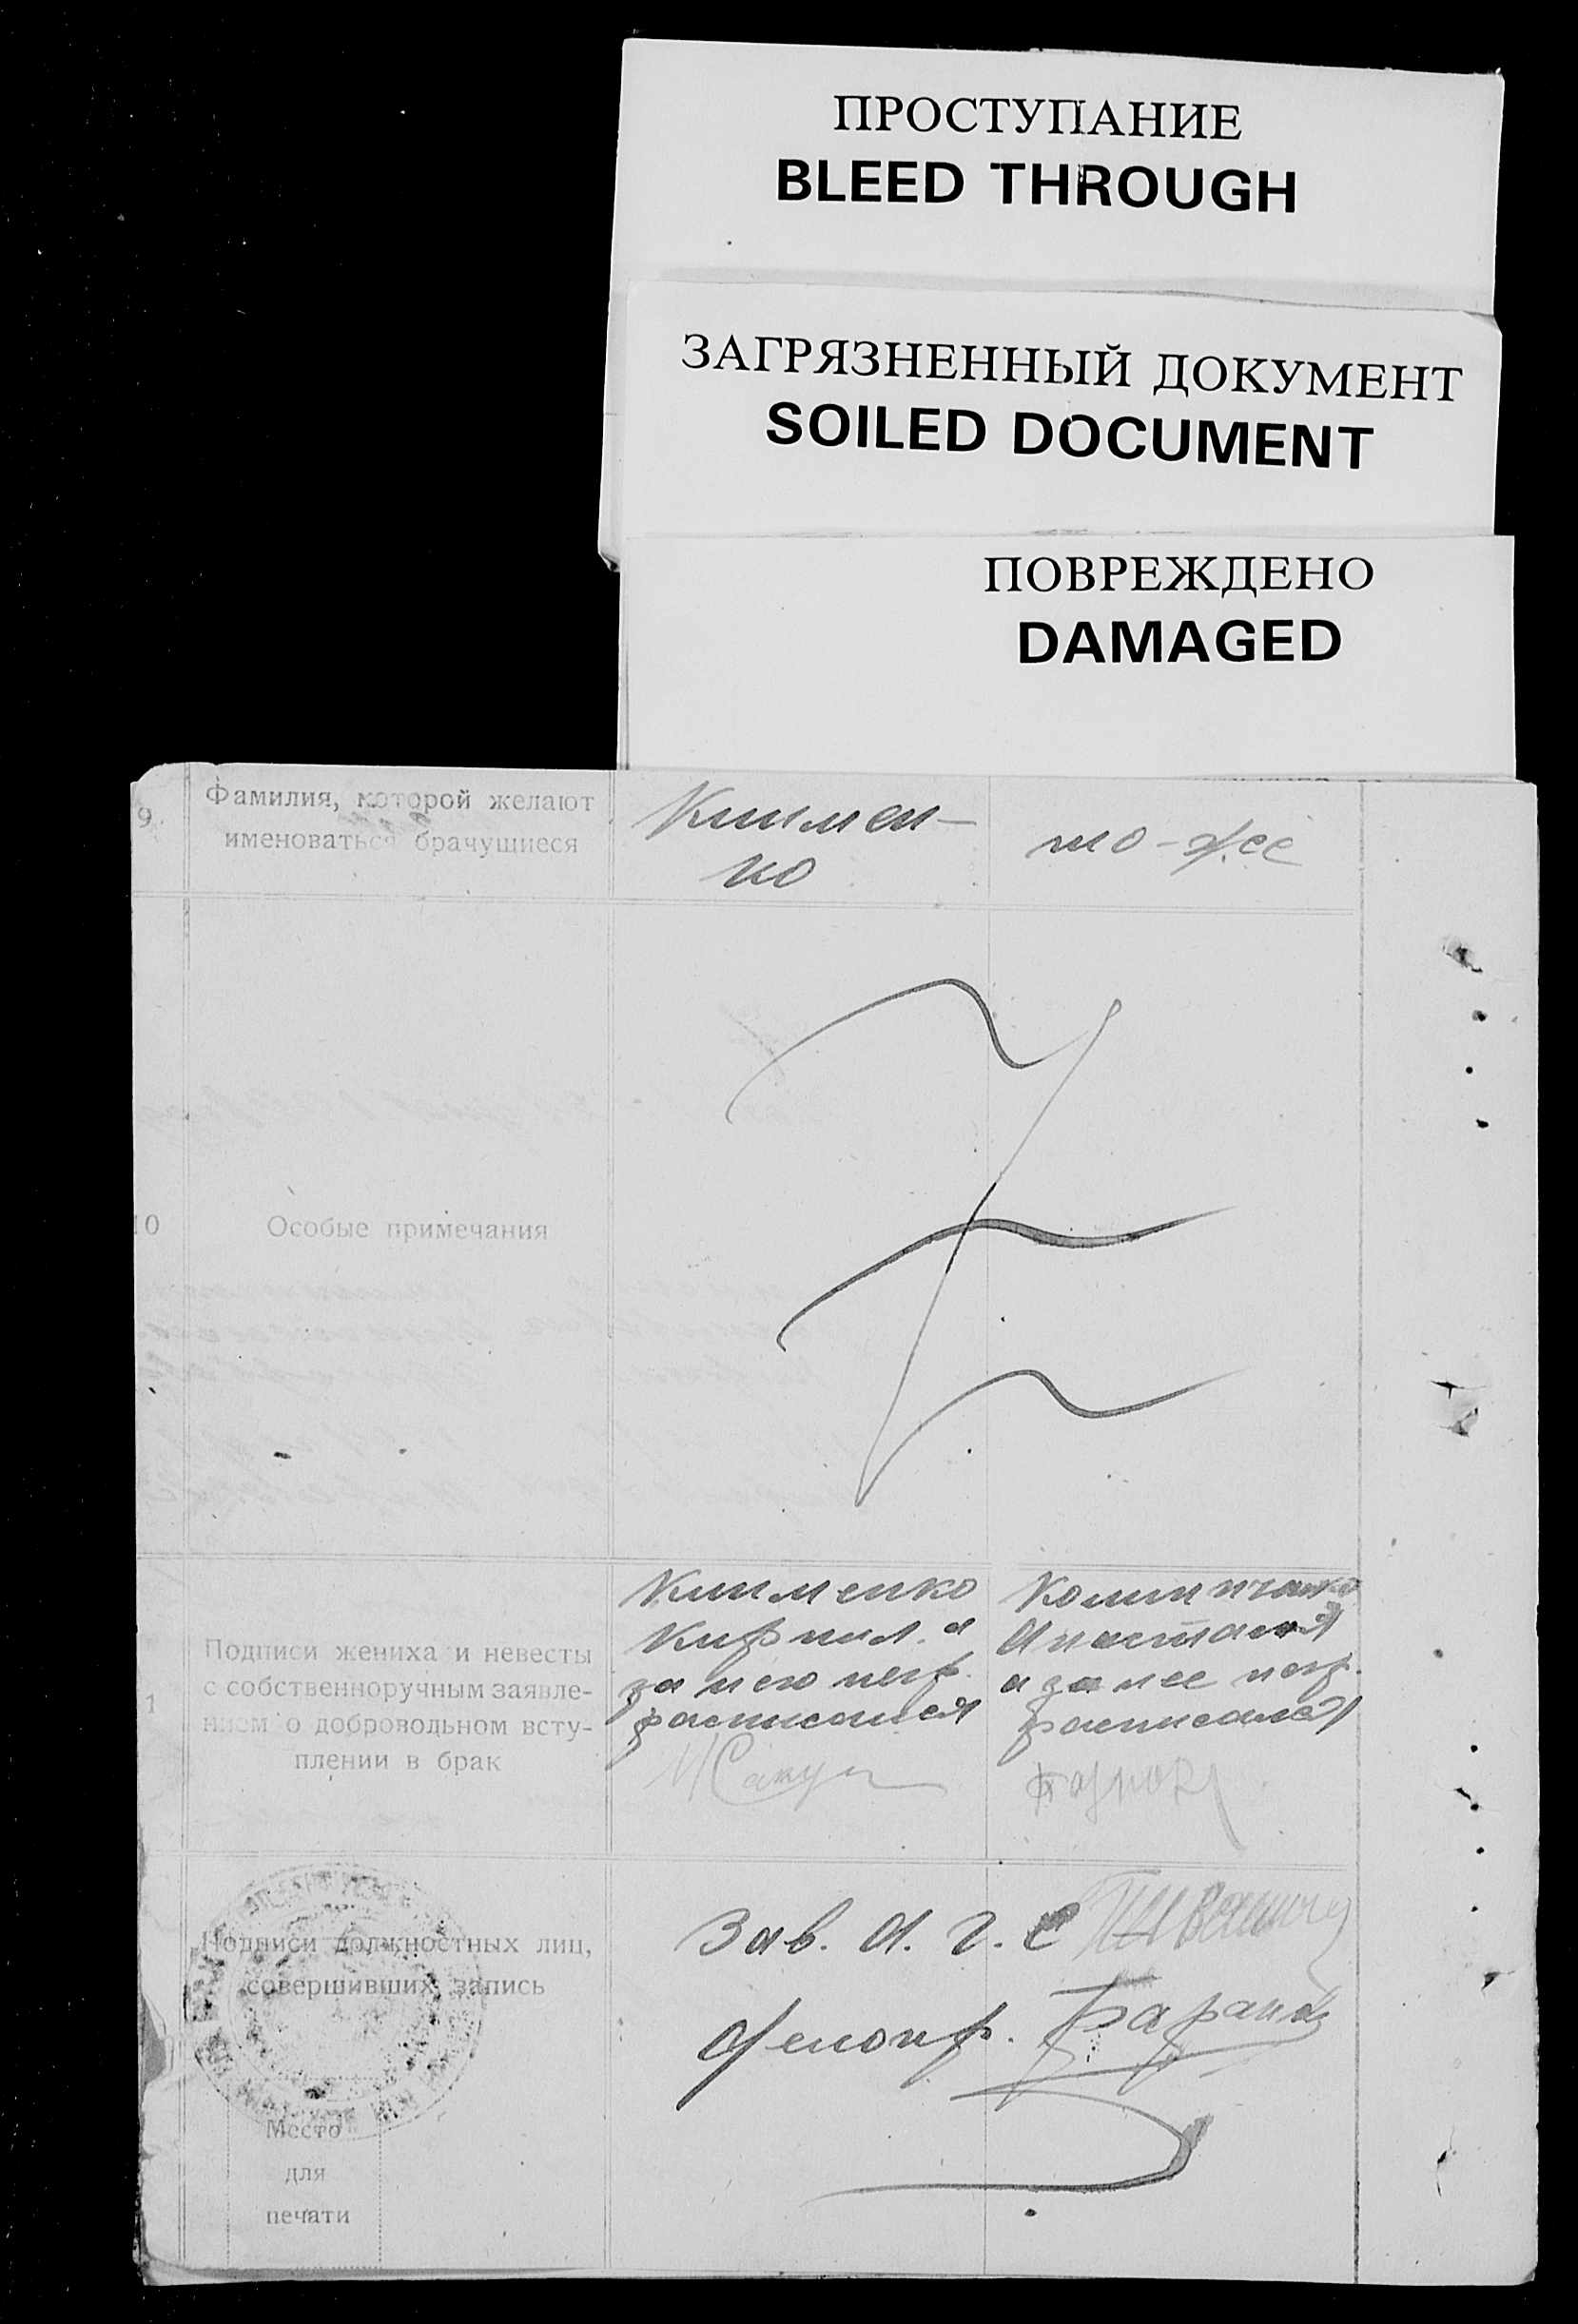 ПРОСТУПАНИЕ
BLEED THROUGH
ЗАГРЯЗНЕННЫЙ ДОКУМЕНТ
SOILED DOCUMENT
ПОВРЕЖДЕНО
DAMAGED
9. Фамилия, которой желают
именоваться брачущиеся
Климен-
ко
то-же
10 Особые примечания
1 Подписи жениха и невесты
с собственноручным заявле-
нием о добровольном всту-
плении в брак
Клименко
Кирилл. а
за него негр.
расписался
Анастасия
а за нее негр.
расписался
Подписи должностных лиц,
совершивших запись
Зав. А. Г. С
Делопр.
Место
для
печати